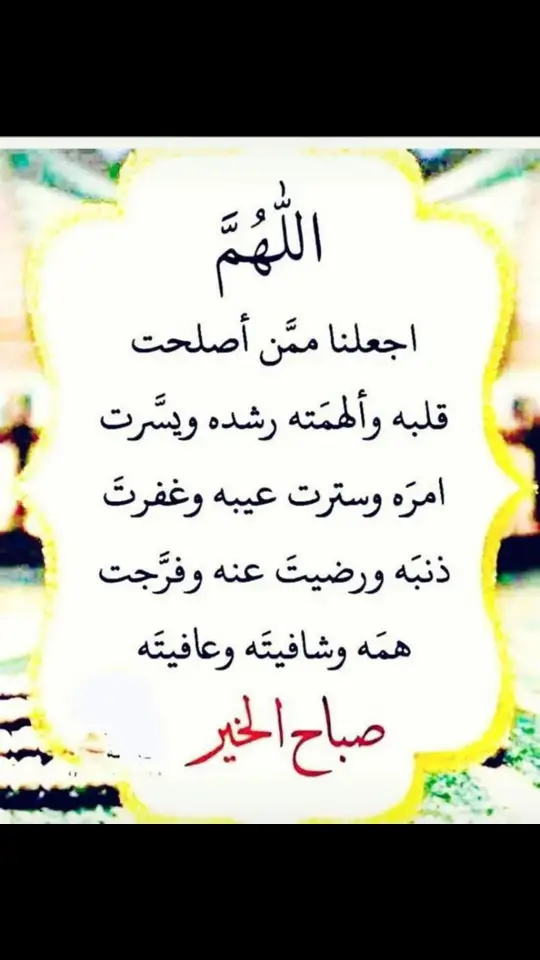 اللّٰهُمَّ
اجعلنا ممَّن أصلحت
قلبه وألهمَته رشده ويسَّرت
امرَه وسترت عيبه وغفرتَ
ذنبَه ورضيتَ عنه وفرَّجت
همَه وشافيتَه وعافيتَه
صباح الخير